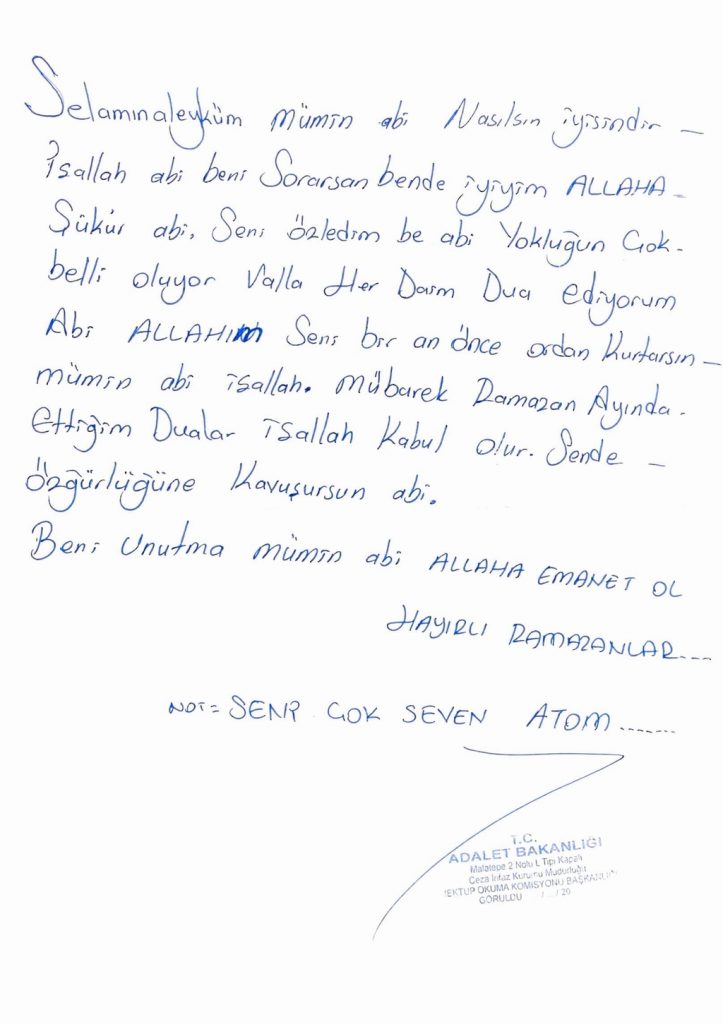 Selamınaleyküm mümin abi Nasılsın iyisindir –
İsallah abi beni Sorarsan bende iyiyim ALLAHA –
Şükür abi. Seni özledim be abi Yokluğun Çok -
belli oluyor Valla Her Daim Dua ediyorum
Abi ALLAHIM Seni bir an önce ordan Kurtarsın –
mümin abi isallah. Mübarek Ramazan Ayında -
Ettiğim Dualar isallah Kabul olur. Sende –
Özgürlüğüne Kavuşursun abi.
Beni Unutma mümin abi ALLAHA EMANET OL
HAYIRLI RAMAZANLAR....
NOT= SENİ ÇOK SEVEN ATOM .......
T.C.
ADALET BAKANLIĞI
Maltepe 2 Nolu L Tipi Kapalı
Ceza İnfaz Kurumu Müdürlüğü
MEKTUP OKUMA KOMİSYONU BAŞKANLIĞI
GÖRÜLDÜ / ... / 20